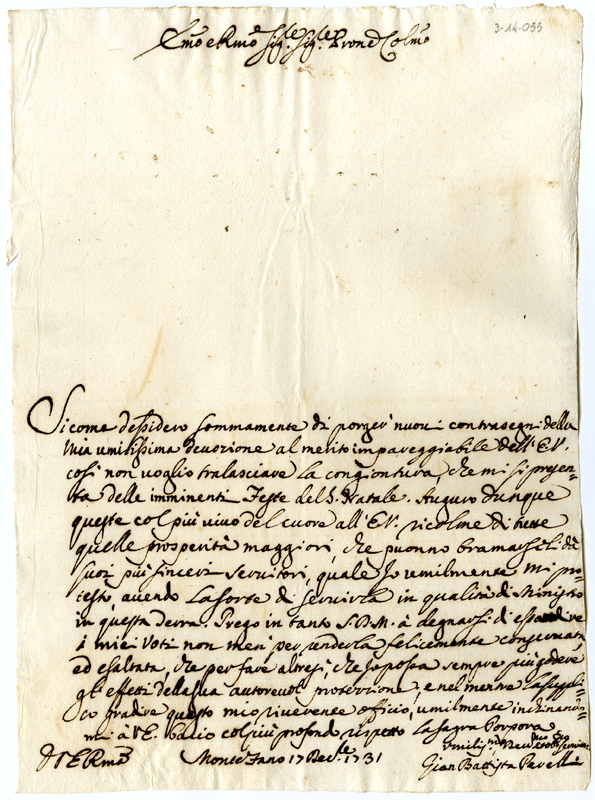 3-14-055
Emo e Rmo Sig.re Sig.re Prone Colmo
Sicome dessidero sommamente di porger nuovi contrasegni della
mia umilissima devozione al merito impareggiabile dell'E.V.
così non voglio tralasciare la congiontura, che mi si presen=
ta delle imminenti Feste del S. Natale. Auguro dunque
queste col più vivo del cuore all'E.V. ricolme di tutte
quelle prosperità maggiori, che puonno bramarseli da
suoi più sinceri servitori, quale Io umilmente mi pro=
testo, avendo la sorte di servirla in qualità di Ministro
in questa Terra. Prego in tanto S.D.M. à degnarsi di
i miei Voti non men per vederla felicemente conservata,
ed esaltata, che per fare altresì, che io possa sempre più godere
gl'effetti della sua autorevol protezzione, e nel mentre la suppli=
co gradire questo mio riverente officio, umilmente inchinando=
mi à l'E. bacio col più profondo rispetto la sagra Porpora
D V E Rma
Monte Fano 17 Dec.bre 1731
Gian Battista